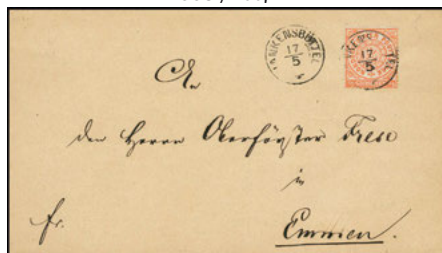 HANKENSBÜTTEL
17
5
HANKENSBÜTTEL
17
5
An
den Herrn Oberförster Frese
in
fr.
Emmen.